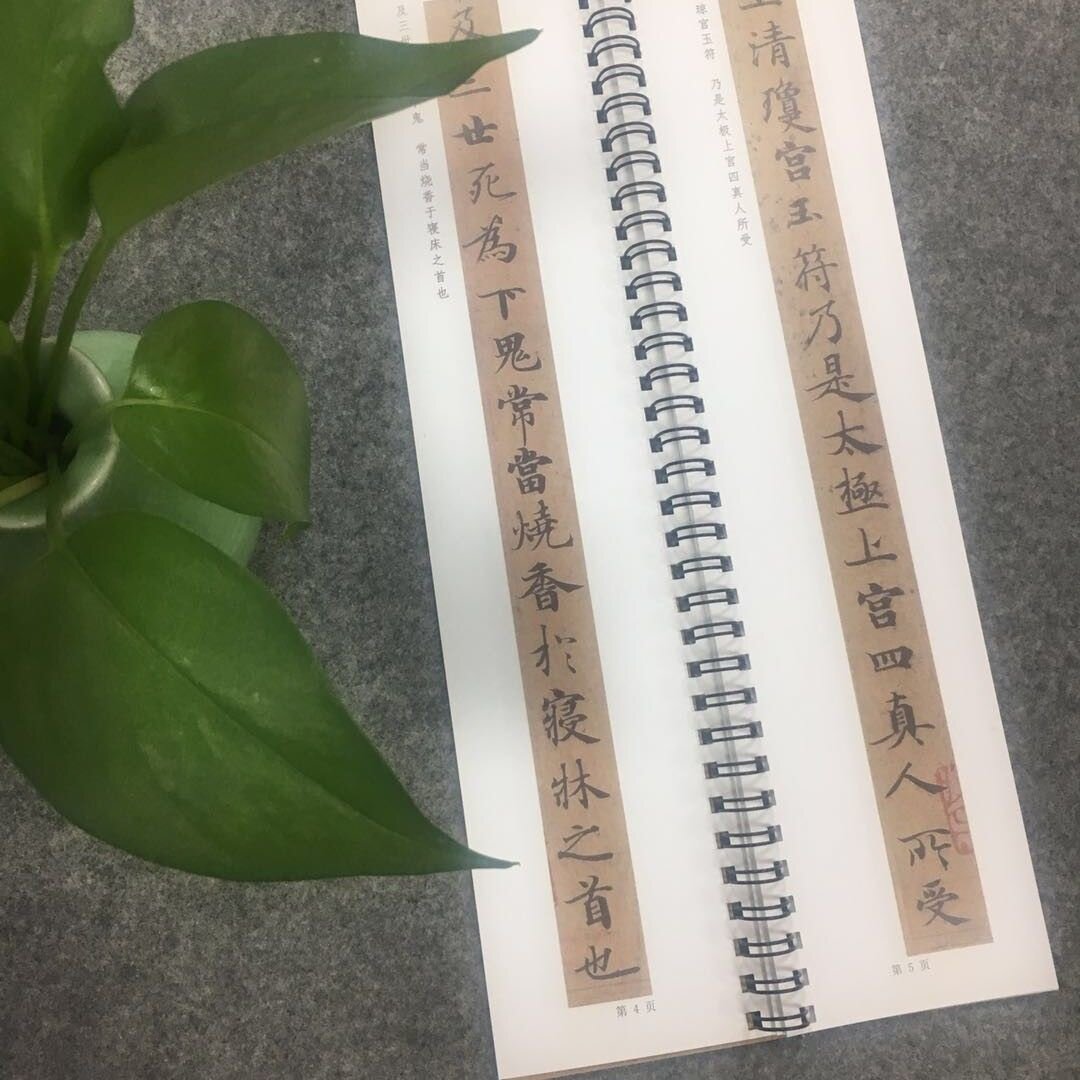 及三世
鬼 常当烧香于寝床之首也
及三世死為下鬼常當燒香於寢牀之首也
第 4 页
琼宫玉符 乃是太极上宫四真人所受
清瓊宫玉符乃是太極上宫四真人所受
第 5 页